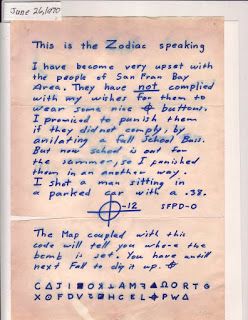 June 26, 1970
This is the Zodiac speaking
I have become very upset with
the people of San Fran Bay
Area. They have not complied
with my wishes for them to
wear some nice ⌖ buttons.
I promiced to punish them
if they did not comply, by
anilating a full School Buss.
But now school is out for
the summer, so I punished
them in an another way.
I shot a man sitting in
a parked car with a .38.
⌖-12 SFPD-0
The Map coupled with this
code will tell you where the
bomb is set. You have untill
next Fall to dig it up. ⌖